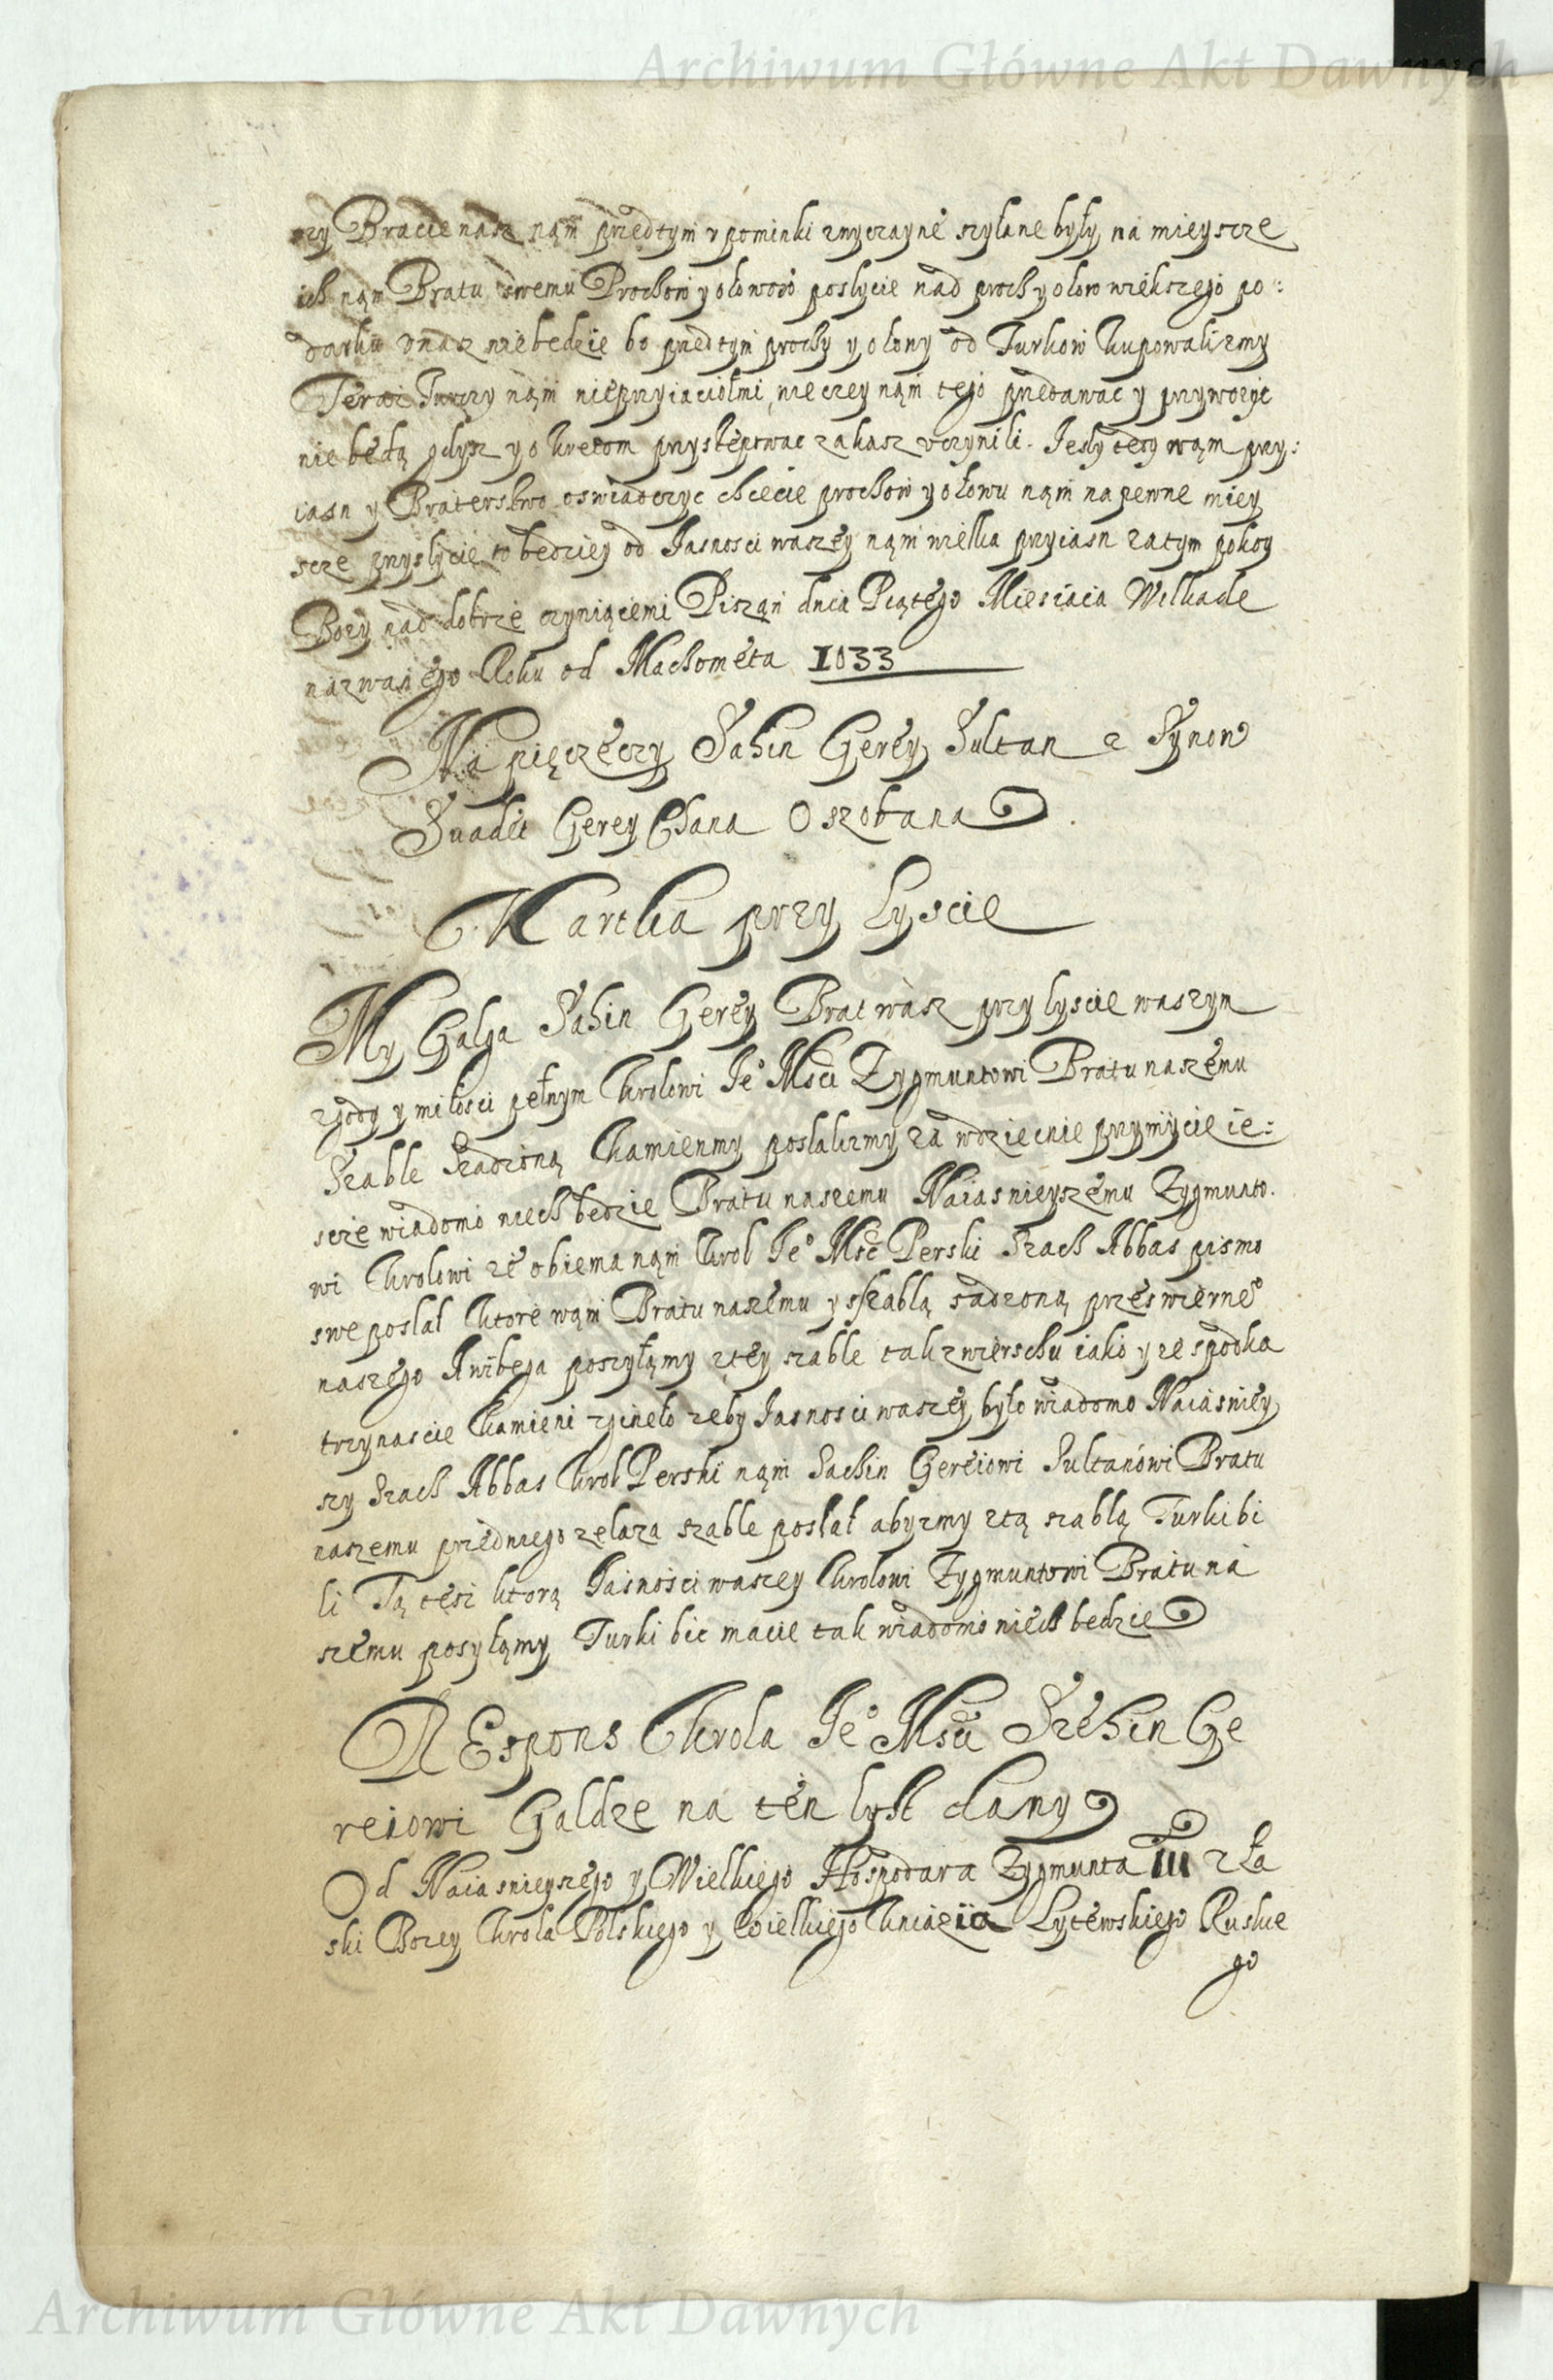 Archiwum Główne Akt Dawnych
Bracie nasz nąm przedtym vpominki zwyczayne szylane były na mieyscze
ich nąm Bratu swemu Prochow y ołowow poslycie nad proch y olow wiekszego po:
darku v nasz nie bedzie bo przedtym prochy y olowy od Turkow kupowalizmy
Teraz Turczy nąm nieprzyiaciołmi, nie czey nąm tego przedawac y przywozyc
nie będą gdysz y okretom przystępowac zakasz vczynili. Jesly tedy wąm przy:
iasn y Braterstwo oswiadczyc chcecie prochow y ołowu nąm na pewne miey
scze przyslycie to bedziey od Jasnosci waszey nąm wielka przyiasn zatym pokoy
Bozy nąd dobrze czyniąciemi Pisząn dnia Piątego Miesiaca Wilkade
nazwanego Roku od Machometa 1033
Na pięczęczy Sahin Gerey Sultan z Synow
Suadet Gerey Chana Oszobana
Kartka przy Lyscie
My Galga Sahin Gerey Brat wasz przy lyscie waszym
zgody y miłosci pełnym Krolowi Je° Msci Zygmuntowi Bratu naszemu
Szable Sadzoną Kamienmy poslalizmy za wdziecnie przymicie ie:
scze wiadomo niech bedzie Bratu naszemu Naiasnieyszemu Zygmunto.
wi Krolowi ze obiema nąm Krol Je° Msc Perski Szach Abbas pismo
swe poslał ktore wąm Bratu naszemu y sszablą sadzoną przes wierne°
naszego Anibega poszyłąmy z tey szable tak zwierschu iako y ze spodka
trzynascie Kamieni zginęło zeby Jasnosci waszey było wiadomo Naiasniey
szy Szach Abbas Krol Perski nąm Sachin Gereiowi Sultanowi Bratu
naszemu przedniego zelaza szable posłał abyzmy z tą szablą Turki bi
li Tą tesz ktorą Jasnosci waszey Krolowi Zygmuntowi Bratu na
szemu posyłąmy Turki bic macie tak wiadomo niech bedzie
REspons Krola Je° Msci Szehin Ge
reiowi Galdze na ten lyst dany
Od Naiasnieyszego y Wielkiego Hospodara Zygmunta III z ła
ski Bozey Krola Polskiego y Wielkiego Kniazia Lytewskiego Ruskie
go
Archiwum Główne Akt Dawnych